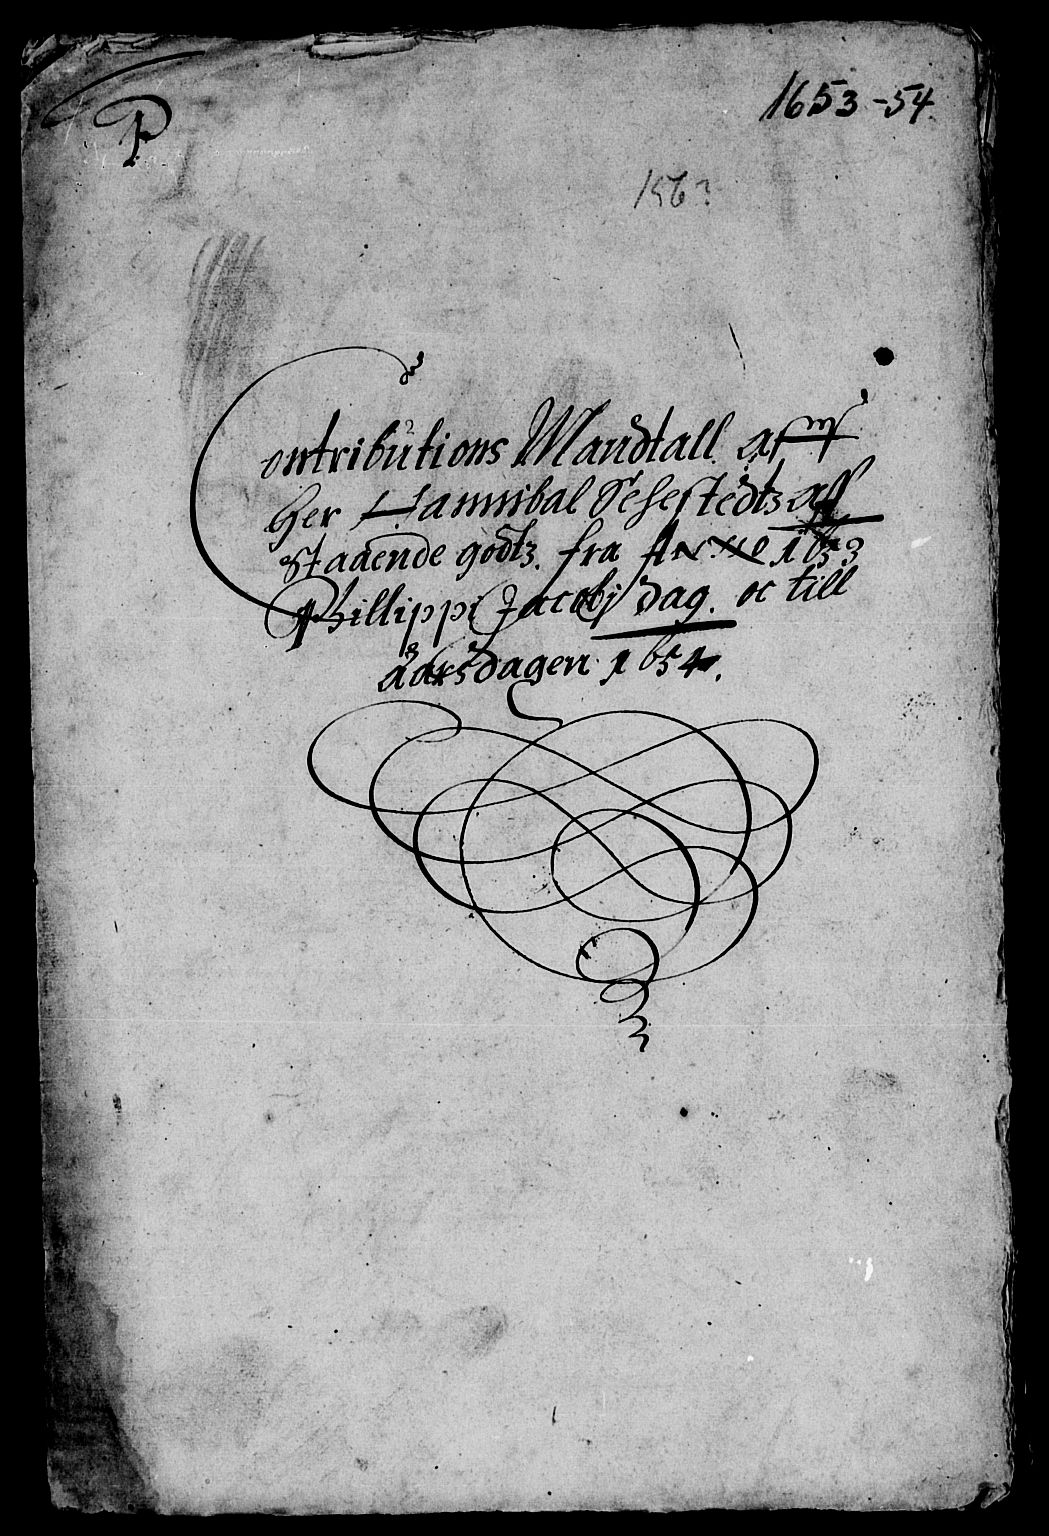 P
1653-54.
Contributions Mandtall aff
Her Hannibal Sehestedtz aff
Staaende godtz. fra Anno 1653
Phillippi Jacobj dag. oc till
åarsdagen 1654.